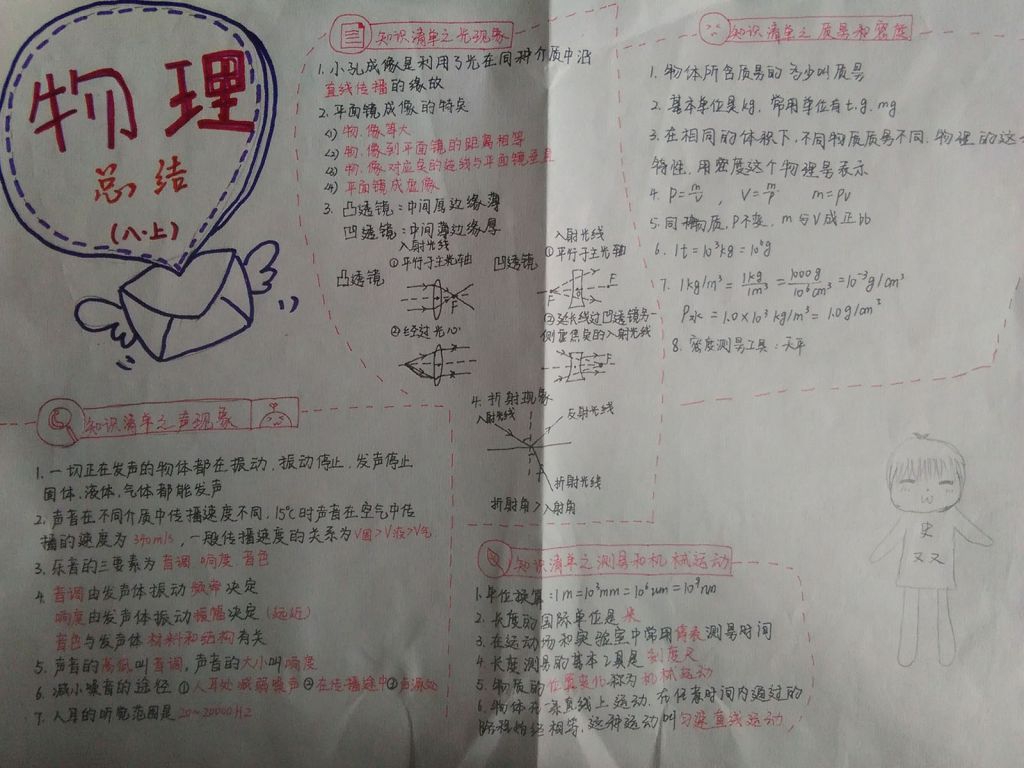 物理
总结
(八·上)
知识清单之光现象
1.小孔成像是利用了光在同种介质中沿
直线传播的缘故
2.平面镜成像的特点
<1>物.像等大
<2>物.像到平面镜的距离相等
<3>物.像对应点的连线与平面镜垂直
<4>平面镜成虚像
3.凸透镜:中间厚边缘薄
凹透镜:中间薄边缘厚
入射光线
①平行于主光轴
凸透镜
F
②经过光心
入射光线
①平行于主光轴
凹透镜
F
②延长线过凹透镜另一
侧虚焦点的入射光线
4.折射现象
入射光线
反射光线
折射光线
折射角>入射角
知识清单之质量和密度
1.物体所含质量的多少叫质量
2.基本单位是kg,常用单位有t.g.mg
3.在相同的体积下,不同物质质量不同.物理的这
特性.用密度这个物理量表示
4.ρ=m/v, V=m/ρ m=ρv
5.同种物质,ρ不变,m与V成正比
6.1t=10³kg=10⁶g
7.1kg/m³=1kg/1m³=1000g/10⁶cm³=10⁻³g/cm³
ρ水=1.0×10³kg/m³=1.0g/cm³
8.密度测量工具:天平
知识清单之声现象
1.一切正在发声的物体都在振动,振动停止,发声停止
固体.液体.气体都能发声
2.声音在不同介质中传播速度不同,15℃时声音在空气中传
播的速度为340m/s,一般传播速度的关系为V固>V液>V气
3.乐音的三要素为音调.响度.音色
4.音调由发声体振动频率决定
响度由发声体振动振幅决定(远近)
音色与发声体材料和结构有关
5.声音的高低叫音调,声音的大小叫响度
6.减小噪音的途径①人耳处减弱噪声②在传播途中③声源处
7.人耳的听觉范围是20~20000HZ
知识清单之测量和机械运动
1.单位换算:1m=10³mm=10⁶um=10⁹nm
2.长度的国际单位是米
3.在运动场和实验室中常用停表测量时间
4.长度测量的基本工具是刻度尺
5.物质的位置变化称为机械运动
6.物体在一条直线上运动.在任意时间内通过的
路程始终相等,这种运动叫匀速直线运动
史
双